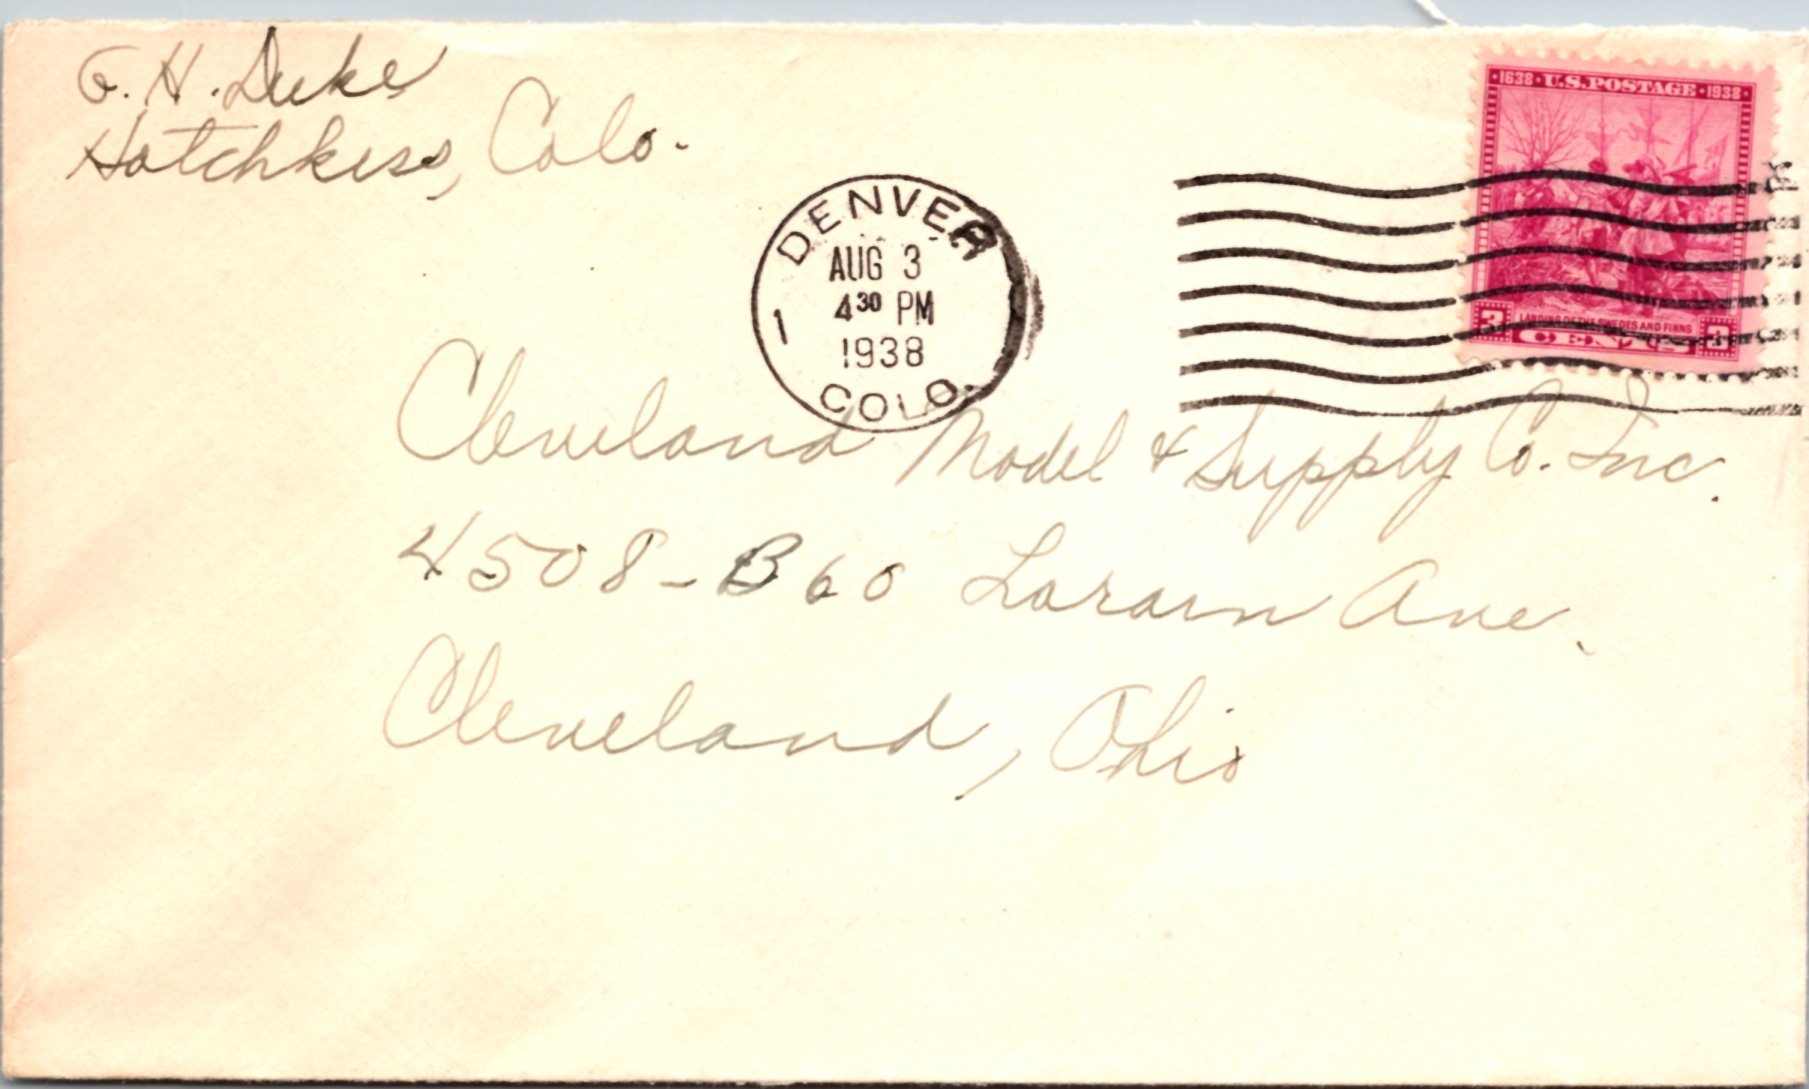 G. H. Duke
Hotchkiss, Colo.
DENVER
AUG 3
4 30 PM
1938
1
COLO.
1638 · U.S. POSTAGE · 1938
LANDING OF THE SWEDES AND FINNS
3 CENTS 3
Cleveland Model & Supply Co. Inc.
4508-B60 Lorain Ave.
Cleveland, Ohio